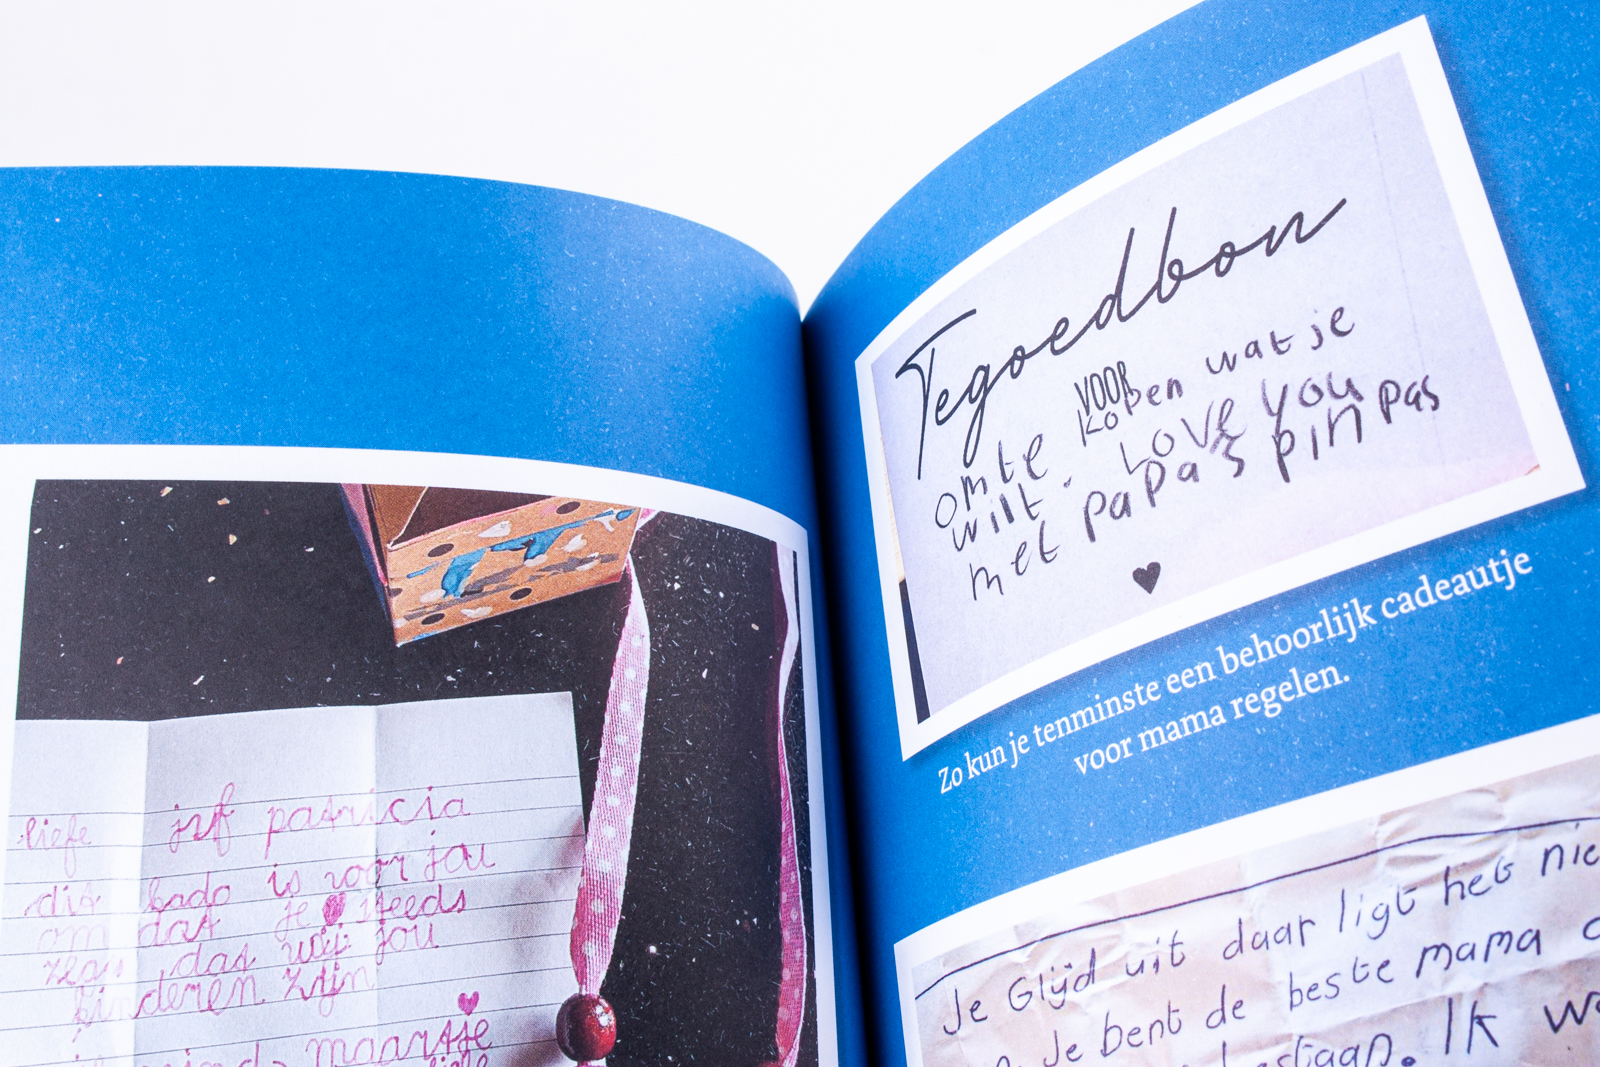 liefe juf patricia
dit kado is voor jou
om dat je steeds
zegt dat wij jou
kinderen zijn
maartje
Tegoedbon
VOOR
om te kopen wat je
wilt. Love you
met papa's pinpas
Zo kun je tenminste een behoorlijk cadeautje
voor mama regelen.
Je Glijd uit daar ligt het nie
Je bent de beste mama
Ik